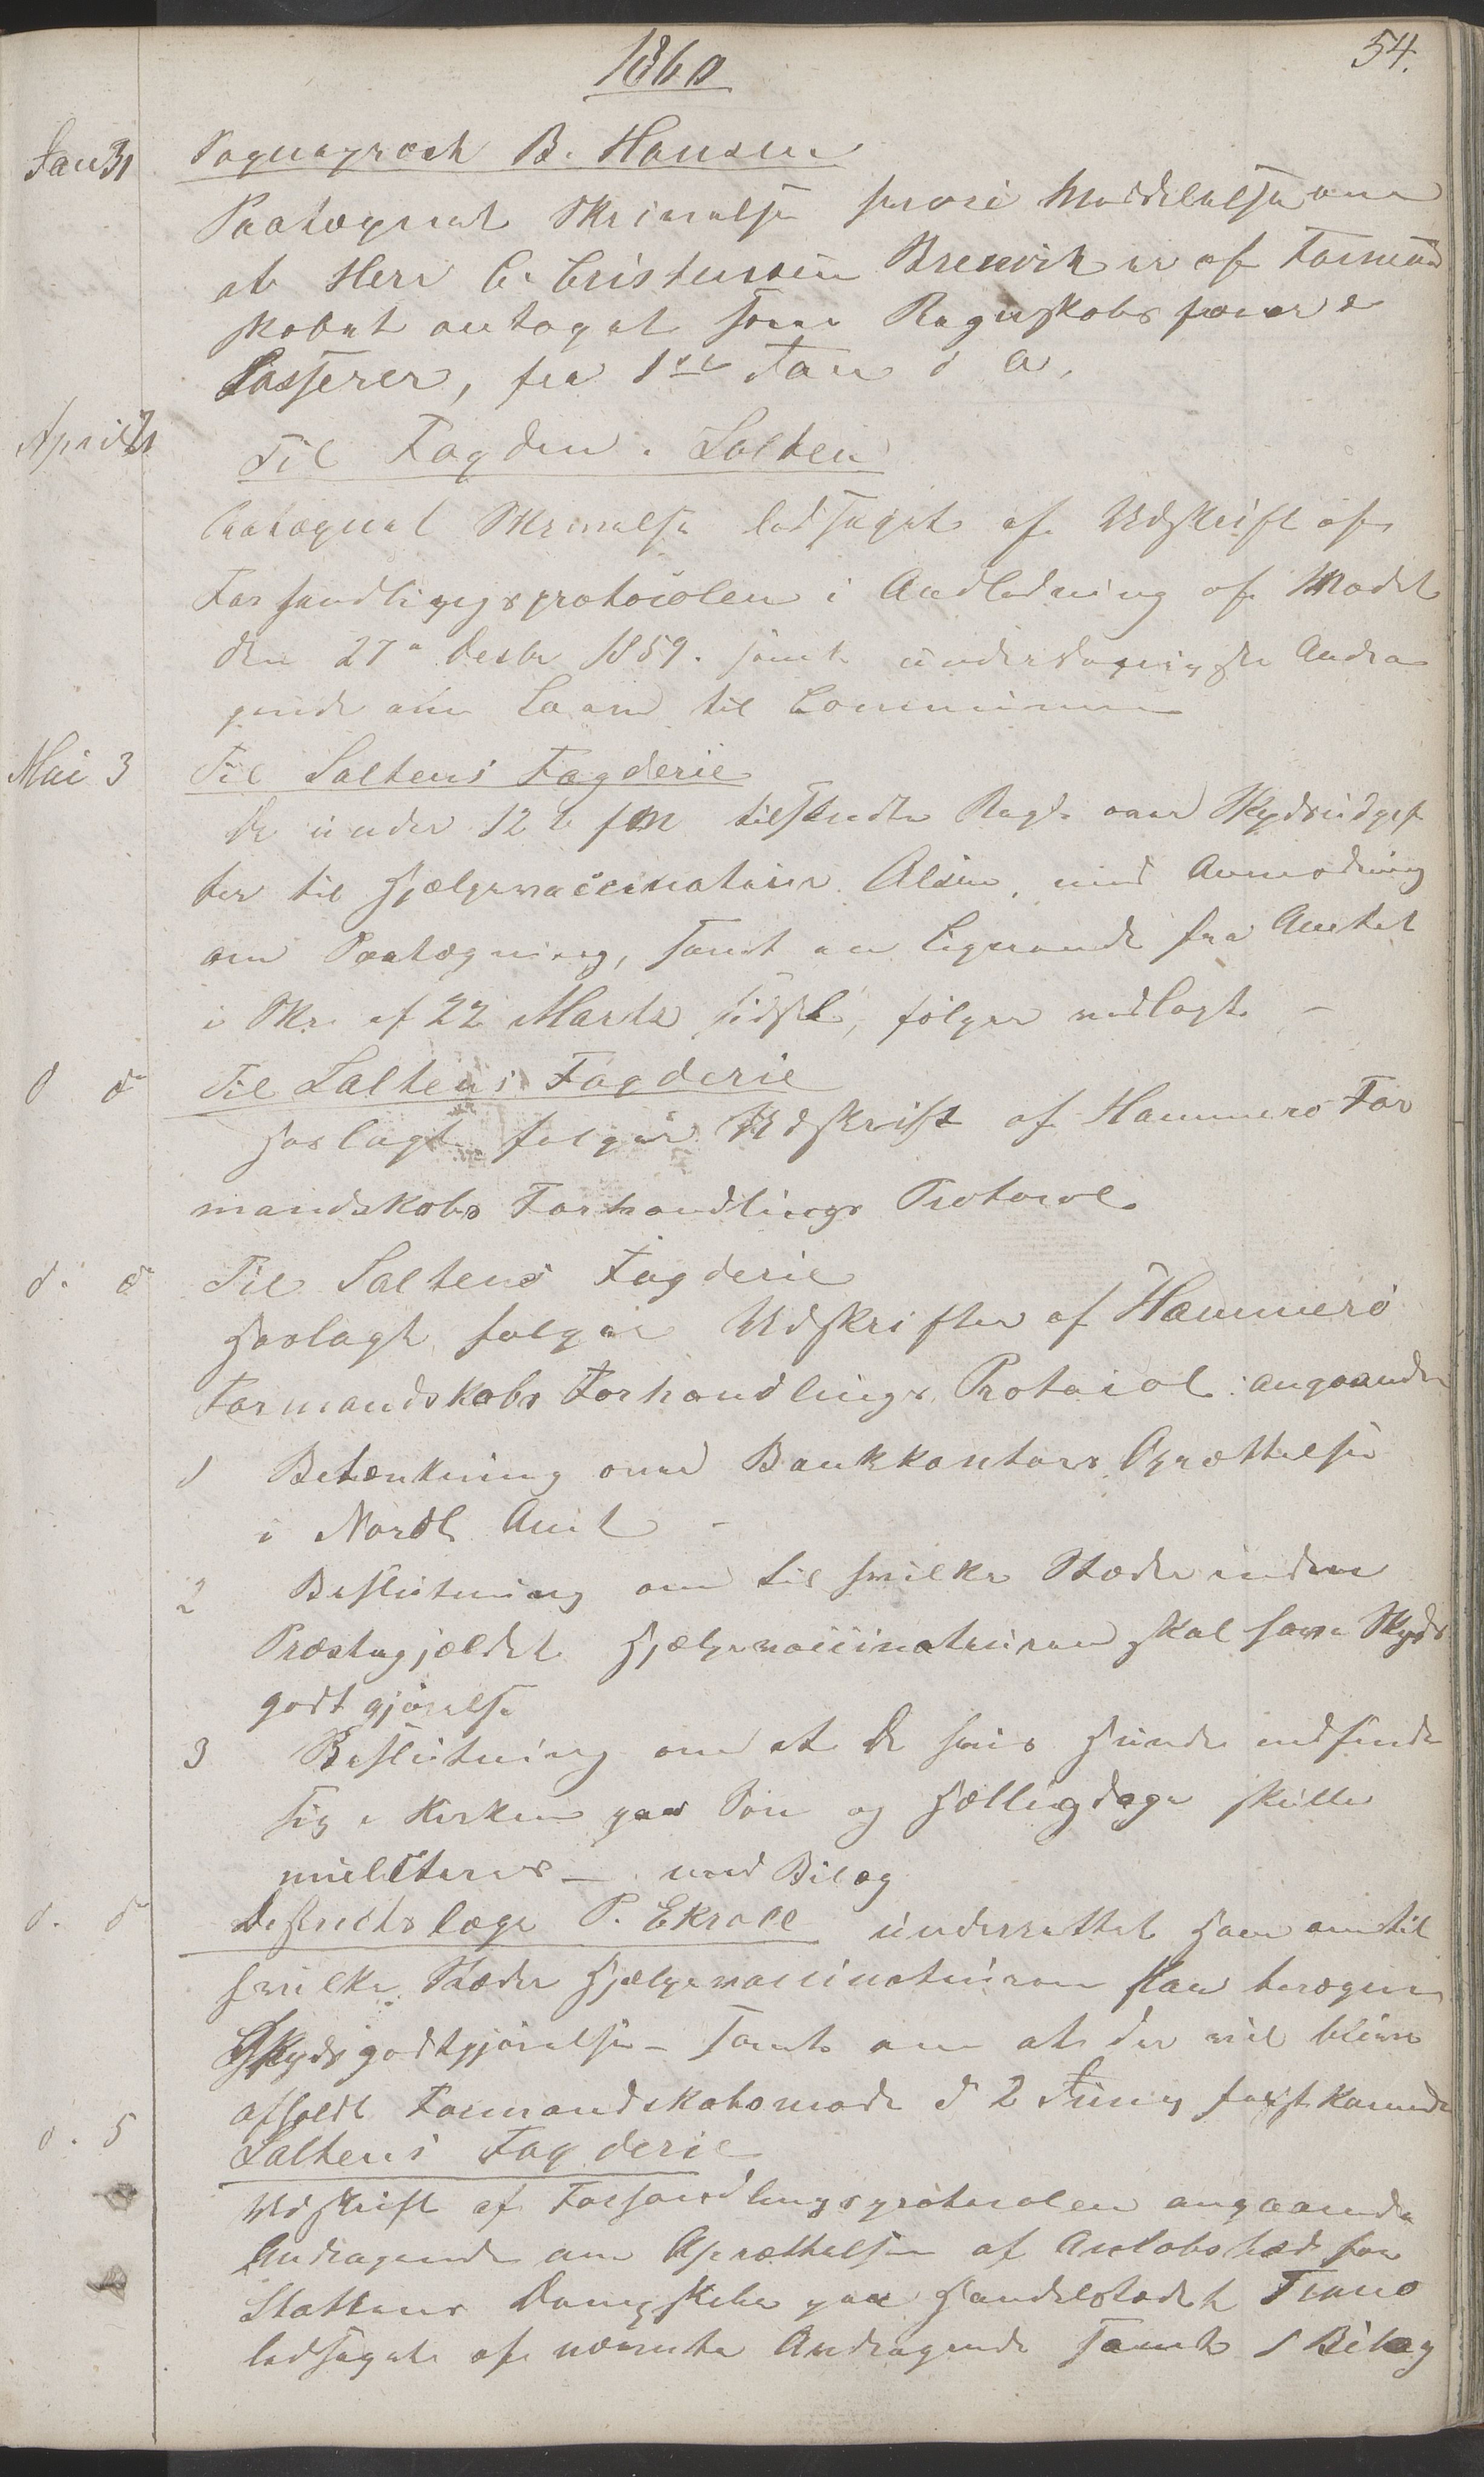 1860
54.
Jan 31
Sogneprest B. Hansen
Paategnet Skrivelse hvori Meddelelse om
at Herr C. Cristensen Brenvik er af Formand
skabet antaget som Regnskabsfører &
Casserer, fra 1ste Jan d A.
April 21
Til Fogden i Salten
Paategnet Skrivelse ledsaget af Udskrift af
Forhandlingsprotocolen i Andledning af Mødet
den 27de Desbr 1859. samt underdanigste Andra
gende om Laan til Communen
Mai 3
Til Saltens Fogderie
De under 12 d f M tilsendte Regn. over Skydsudgif
ter til Hjælpevaccinateur Alsen, med Anmodning
om Paategning, samt en lignende fra Amtet
i Skr. af 22 Marts sidstl, følger vedlagt –
d do
Til Saltens Fogderie
Hoslagt følger Udskrift af Hammerø For
mandskabs Forhandlings Protocol.
d. do
Til Saltens Fogderie
Hoslagt følger Udskrifter af Hammerø
Formandskabs Forhandlings Protocol: angaaende
1 Betænkning om Bankkontors Oprettelse
i Nordl. Amt –
2 Beslutning om til hvilke Stæder inden
Præstegjældet Hjælpevaccinateuren skal have Skyds
godtgjørelse
3 Beslutning om at De hvis Hunde indfinde
sig i Kirken paa Søn og Helligdage skulle
mulcteres – med Bilag
d. do
Destrictslæge P. Ekroll underrettet Ham om til
hvilke Stæder Hjælpevaccinateuren kan beregne
Skydsgodtgjørelse – Samt om at der vil blive
afholdt Formandskabsmøde d 2 Juny førstkommende
d. 5
Saltens Fogderie
Udskrift af Forhandlingsprotocolen angaaende
Andragende om Oprettelse af Anløbssted for
Stattens Dampskibe paa Handelstedet Tranø
ledsaget af nævnte Andragende Samt 1 Bilag